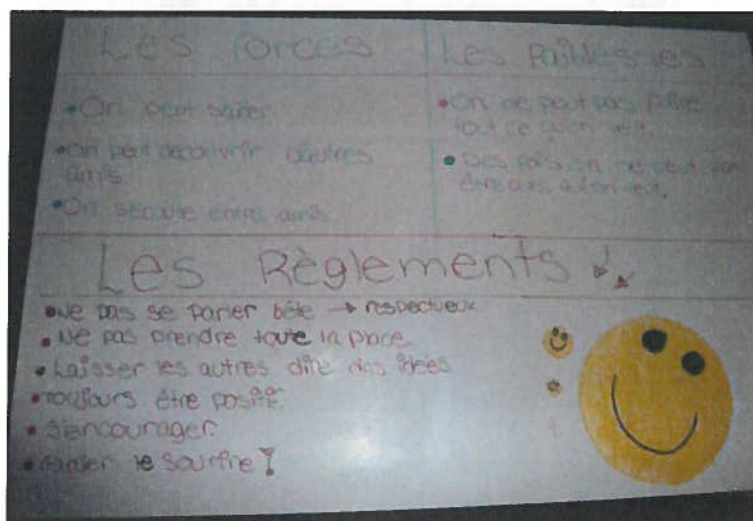 Les forces
Les faiblesses
• On peut
• On peut découvrir d'autres
amis.
• On s'écoute entre amis
• On ne peut pas faire
tout ce qu'on veut.
• Des fois on ne peut pas
être avec qu'on veut.
Les Règlements
• Ne pas se parler bête → respectueux
• Ne pas prendre toute la place
• Laisser les autres dire des idées
• Toujours être positif.
• S'encourager.
• Garder le sourire !